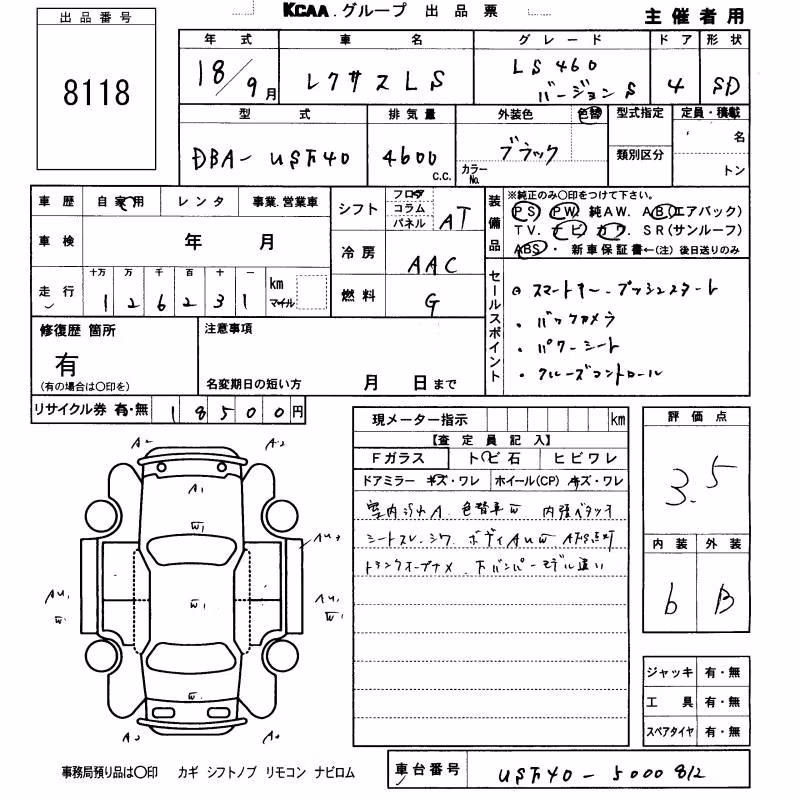 KCAA.グループ 出品票
主催者用
出品番号
8118
年式 車名 グレード ドア 形状
18/9月 レクサスLS LS460 バージョンS 4 SD
型式 排気量 外装色 色替 型式指定 定員・積載
DBA-USF40 4600 c.c. ブラック カラーNo. 類別区分 名 トン
車歴 自家用 レンタ 事業.営業車
車検 年 月
走行 十万 万 千 百 十 一
1 2 6 2 3 1 km マイル
シフト フロア コラム パネル AT
冷房 AAC
燃料 G
装備品
※純正のみ○印をつけて下さい。
PS PW 純AW. AB.(エアバック)
TV. ナビ カワ. SR(サンルーフ)
ABS・ 新車保証書←(注) 後日送りのみ
セールスポイント
スマートキー・プッシュスタート
・バックカメラ
・パワーシート
・クルーズコントロール
修復歴 箇所
有
(有の場合は○印を)
注意事項
名変期日の短い方 月 日まで
リサイクル券 有・無 18500円
現メーター指示 km
【査定員記入】
Fガラス トビ石 ヒビワレ
ドアミラー キズ・ワレ ホイール(CP) キズ・ワレ
シートスレ シワ ボディAUW
下バンパーモデル違い
評価点
3.5
内装 外装
6 B
ジャッキ 有・無
工具 有・無
スペアタイヤ 有・無
A2 A2
A1
W1
AU1 W W1 AU1 W
W
事務局預り品は○印 カギ シフトノブ リモコン ナビロム
車台番号 USF40-5000812